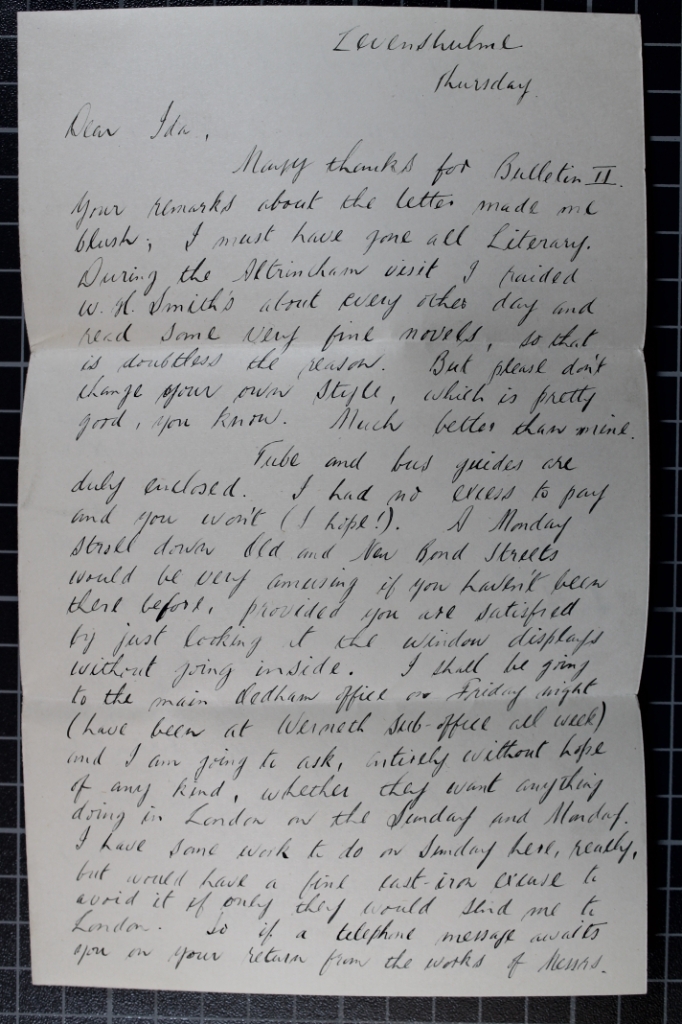 Levenshulme
Thursday.
Dear Ida,
Many thanks for Bulletin II.
Your remarks about the letter made me
blush; I must have gone all Literary.
During the Altrincham visit I raided
W. H. Smith's about every other day and
read some very fine novels, so that
is doubtless the reason. But please don't
change your own style, which is pretty
good, you know. Much better than mine.
Tube and bus guides are
duly enclosed. I had no excess to pay
and you won't (I hope!). A Monday
stroll down Old and New Bond Streets
would be very amusing if you haven't been
there before, provided you are satisfied
by just looking at the window displays
without going inside. I shall be going
to the main Oldham office on Friday night
(have been at Werneth sub-office all week)
and I am going to ask, entirely without hope
of any kind, whether they want anything
doing in London on the Sunday and Monday.
I have some work to do on Sunday here, really,
but would have a fine cast-iron excuse to
avoid it if only they would send me to
London. So if a telephone message awaits
you on your return from the works of Messrs.